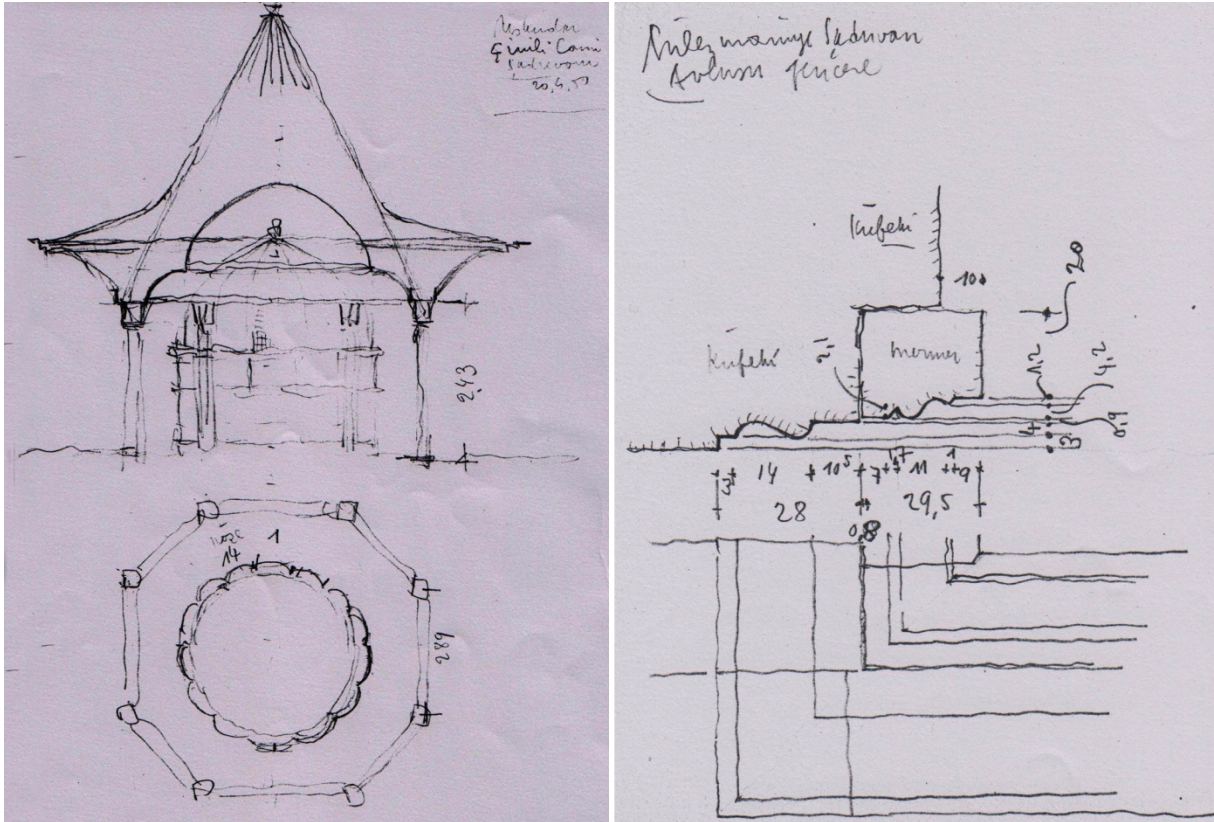 Üsküdar
Çinili Cami
Şadırvanı
243
14
1
289
Süleymaniye Şadırvan
Avlusu pencere
Küfeki
100
20
Küfeki
2,1
mermer
1,2
4,2
4
3
0,9
3 14 10⁵ 7 11 1 9
28 29,5
0,8